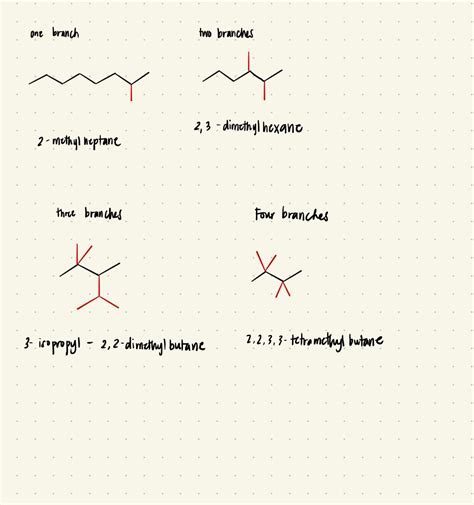 one branch
two branches
2-methyl heptane
2,3-dimethyl hexane
three branches
Four branches
3-isopropyl - 2,2-dimethyl butane
2,2,3,3-tetramethyl butane